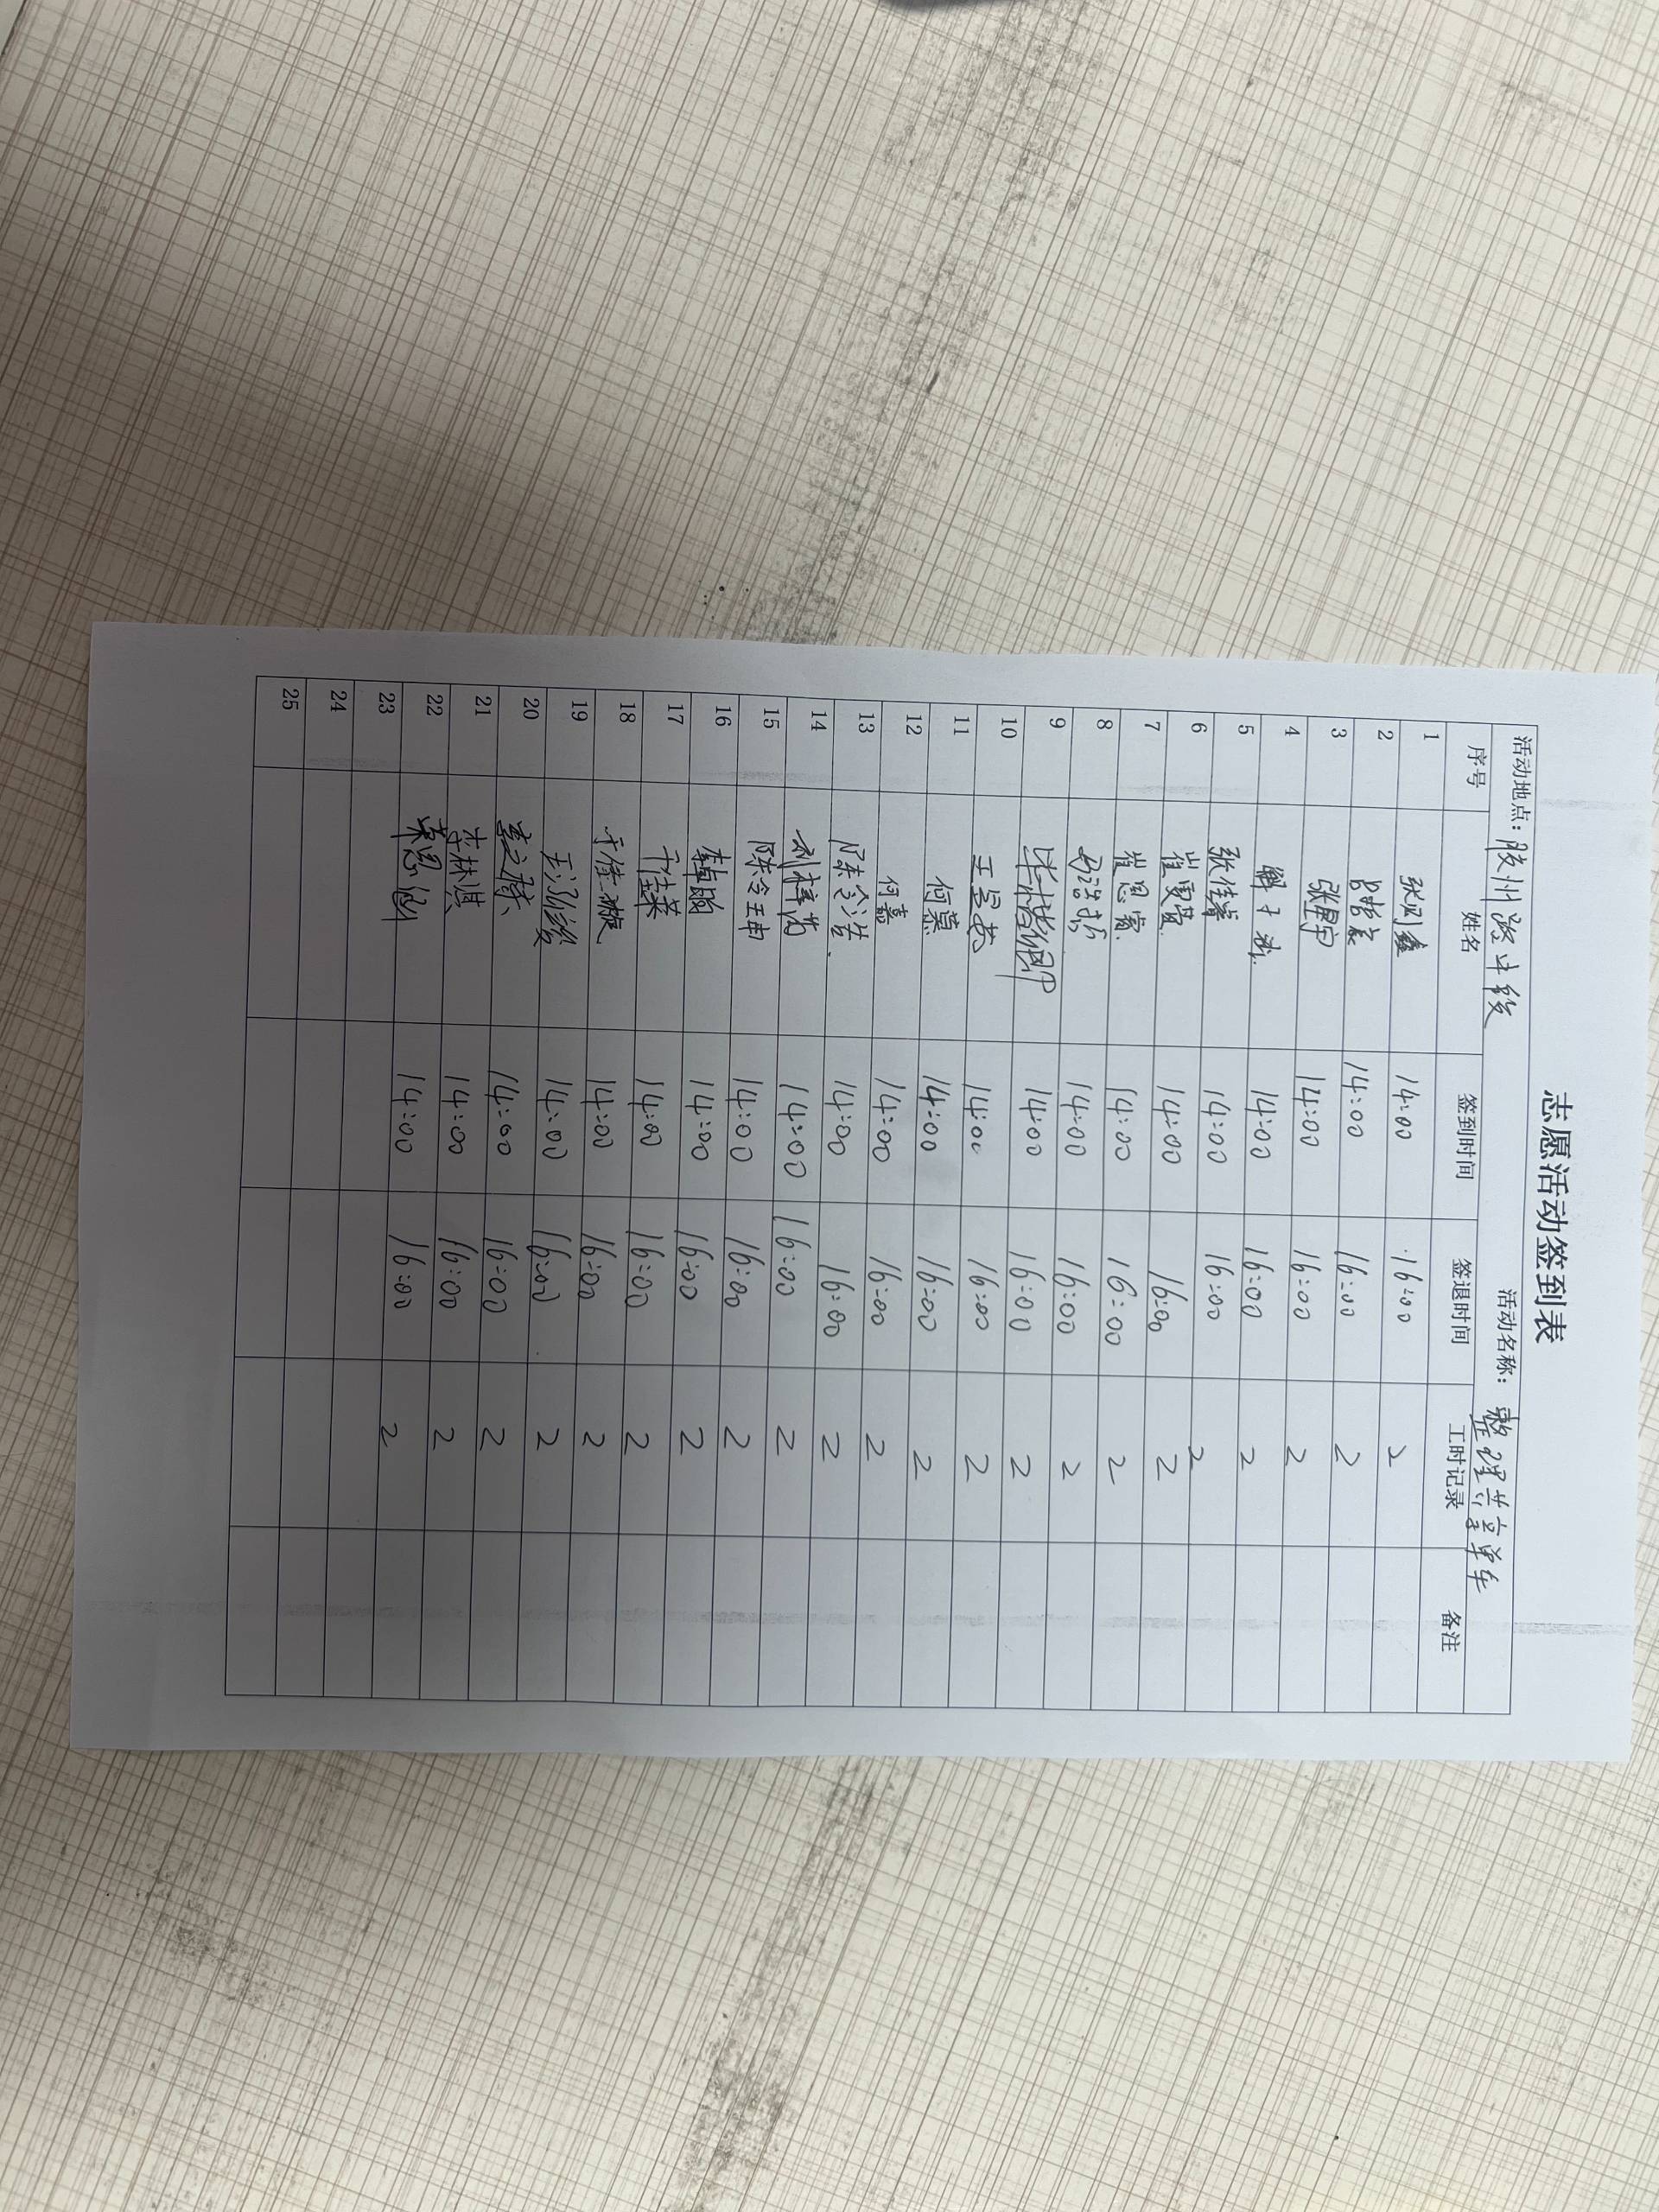 志愿活动签到表
活动地点：胶州路中段 活动名称：整理共享单车
序号 姓名 签到时间 签退时间 工时记录 备注
1 14:00 16:00 2
2 14:00 16:00 2
3 张星宇 14:00 16:00 2
4 14:00 16:00 2
5 张佳睿 14:00 16:00 2
6 14:00 16:00 2
7 崔恩宾 14:00 16:00 2
8 14:00 16:00 2
9 14:00 16:00 2
10 14:00 16:00 2
11 何慕 14:00 16:00 2
12 何嘉 14:00 16:00 2
13 陈含洁 14:00 16:00 2
14 14:00 16:00 2
15 陈令冉 14:00 16:00 2
16 14:00 16:00 2
17 于佳莱 14:00 16:00 2
18 14:00 16:00 2
19 14:00 16:00 2
20 14:00 16:00 2
21 李林淇 14:00 16:00 2
22 14:00 16:00 2
23
24
25